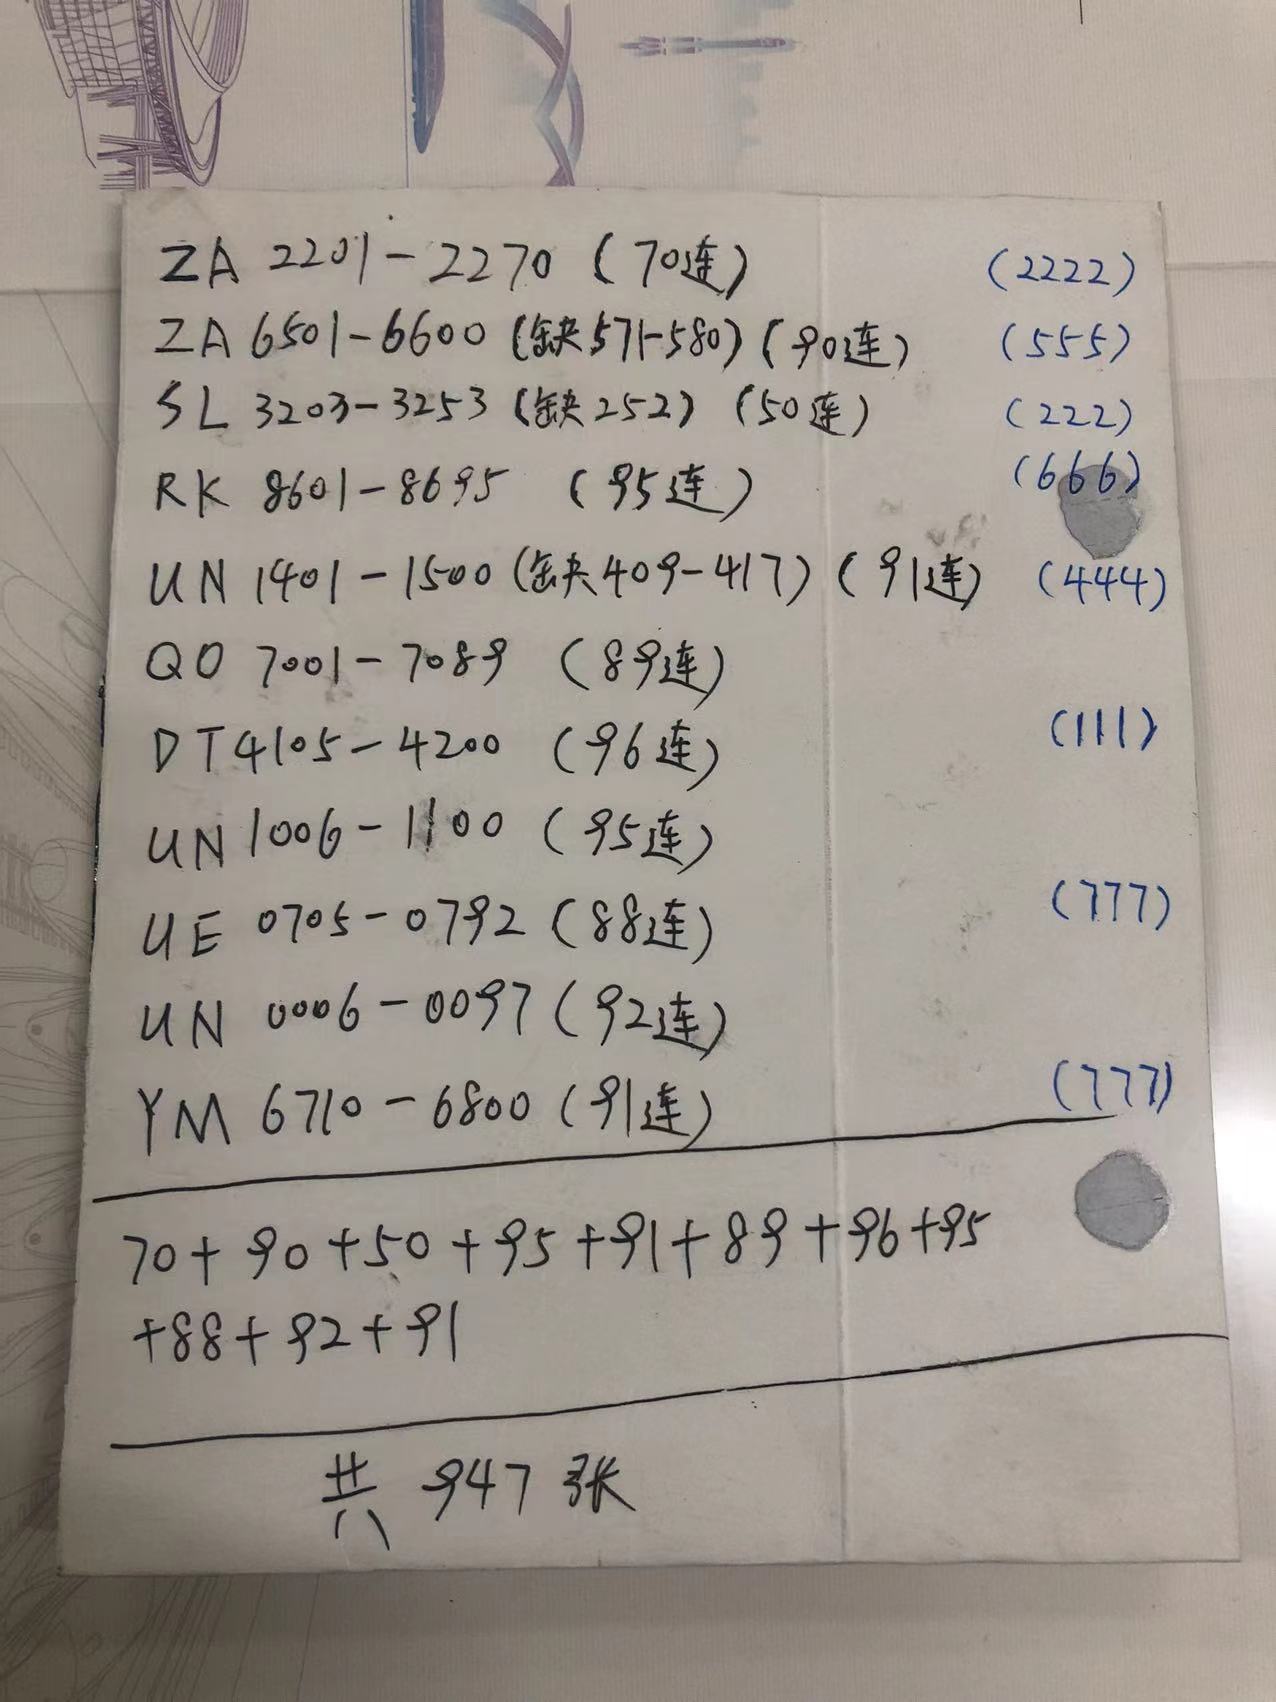 ZA 2201-2270 (70连) (2222)
ZA 6501-6600 (缺571-580) (90连) (555)
SL 3203-3253 (缺252) (50连) (222)
RK 8601-8695 (95连) (666)
UN 1401-1500 (缺409-417) (91连) (444)
QO 7001-7089 (89连)
DT4105-4200 (96连) (111)
UN 1006-1100 (95连)
UE 0705-0792 (88连) (777)
UN 0006-0097 (92连)
YM 6710-6800 (91连) (777)
70+90+50+95+91+89+96+95
+88+92+91
共 947 张